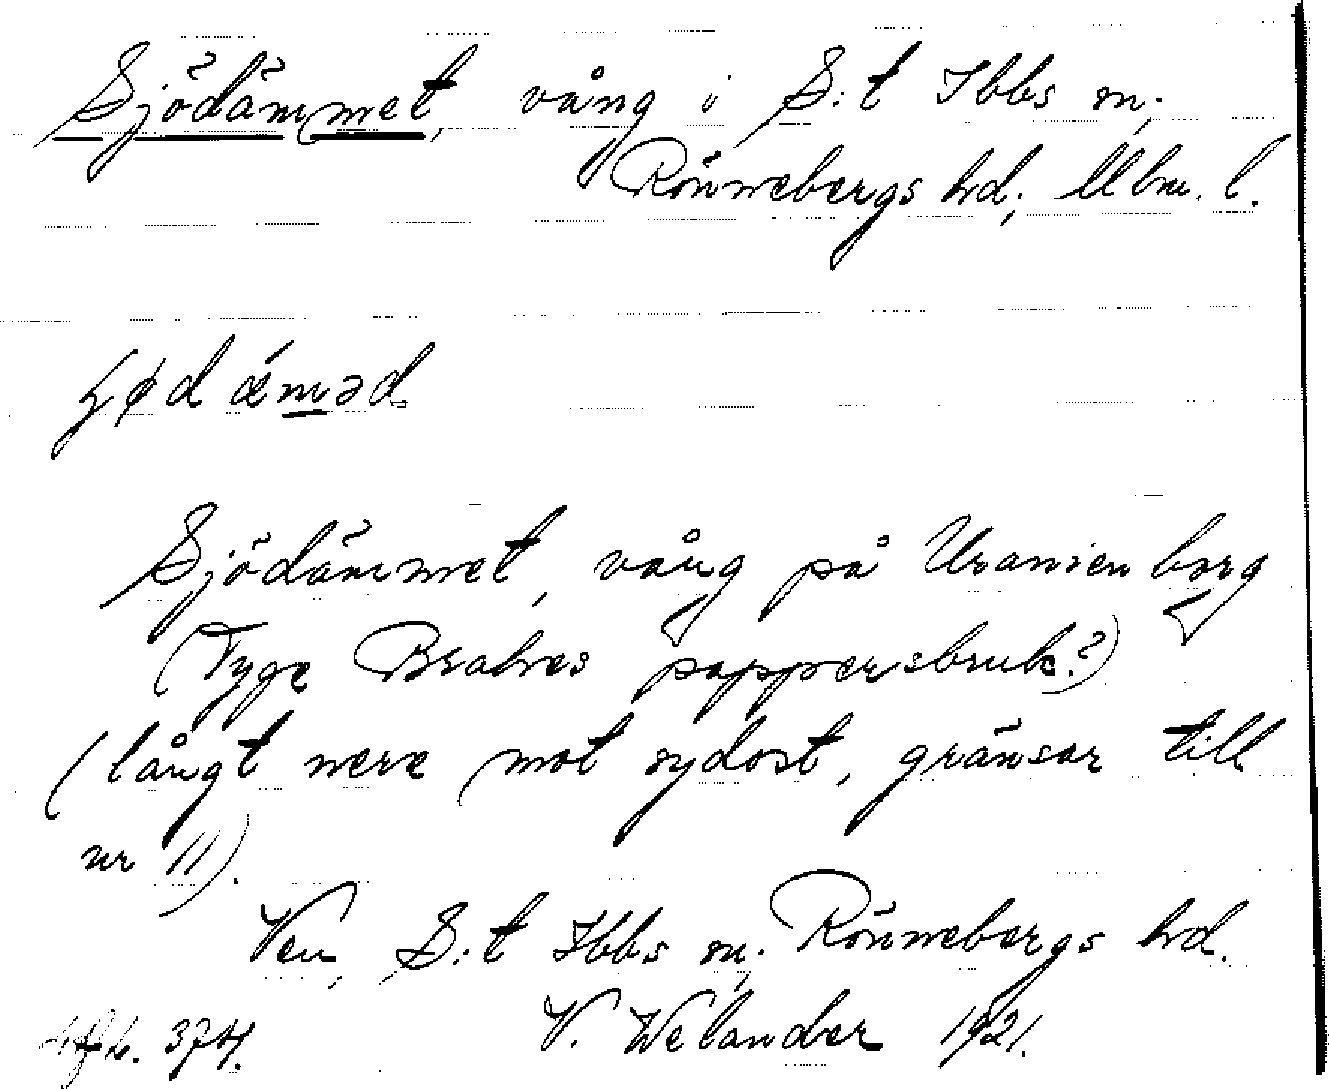 Sjödämmet, vång i S:t Ibbs sn,
Rönnebergs hd, Mlm. l.
ʒødǽməd
Sjödämmet, vång på Uranienborg
(Tyge Brahes pappersbruk?)
(långt nere mot sydost, gränsar till
nr 11).
Ven, S:t Ibbs sn, Rönnebergs hd.
374. V. Welander 1921.